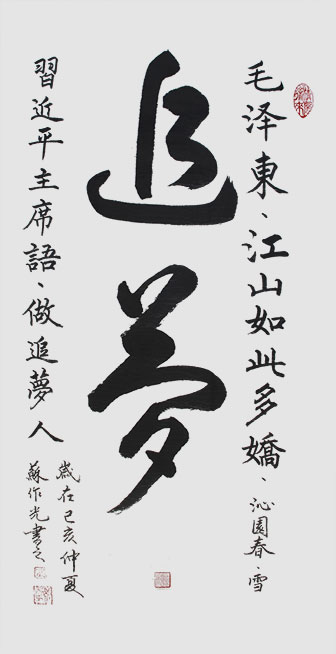 毛泽東、江山如此多嬌、沁園春·雪
追夢
習近平主席語、做追夢人
歲在己亥仲夏
蘇作光書之